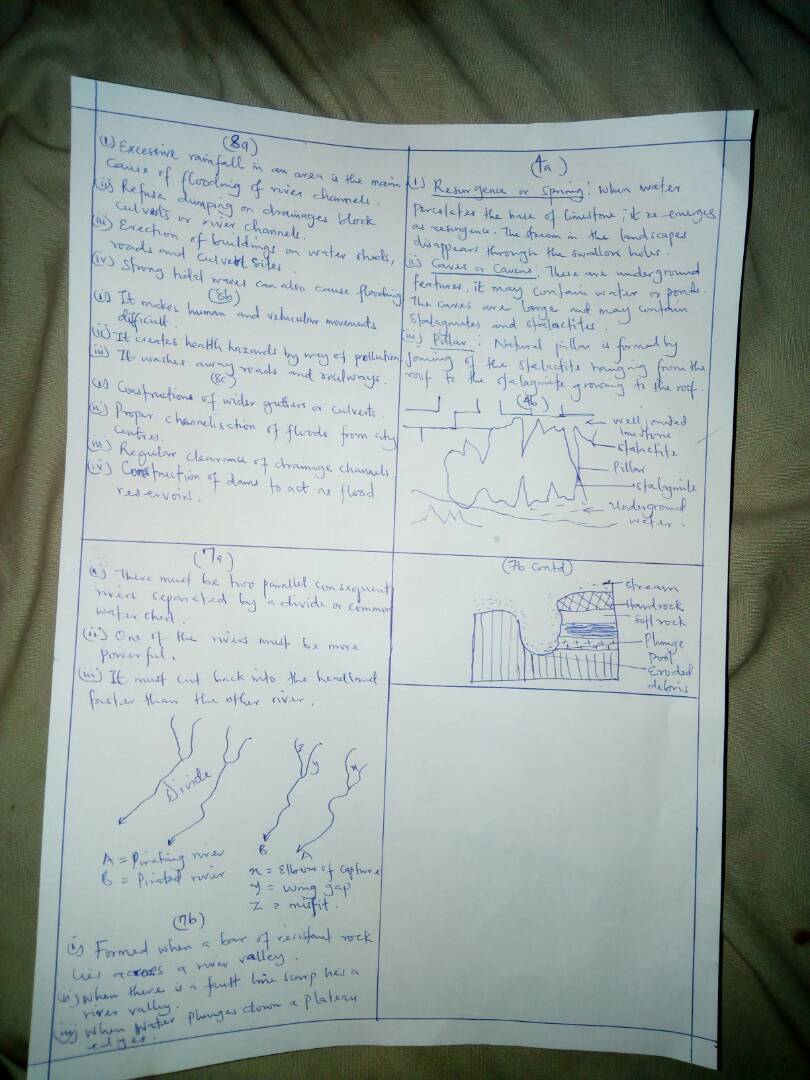 (8a)
(i) Excessive rainfall in an area is the main
cause of flooding of river channels.
(ii) Refuse dumping on drainages block
culverts or river channels.
(iii) Erection of buildings on water sheds,
roads and culvert sites.
(iv) Strong tidal waves can also cause flooding
(8b)
(i) It makes human and vehicular movements
difficult.
(ii) It creates health hazards by way of pollution
(iii) It washes away roads and railways.
(8c)
(i) Constructions of wider gutters or culverts.
(ii) Proper channelisation of floods from city
centres.
(iii) Regular clearance of drainage channels.
(iv) Construction of dams to act as flood
reservoirs.
(4a)
(i) Resurgence or Spring: When water
percolates the base of limestone; it re-emerges
as resurgence. The stream in the landscapes
disappears through the swallow holes.
(ii) Caves or Cavens: These are underground
features, it may contain water or ponds.
The caves are large and may contain
stalagmites and stalactites.
(iii) Pillar: Natural pillar is formed by
joining of the stalactite hanging from the
roof to the stalagmite growing to the roof.
(4b)
well jointed
limestone
stalactite
Pillar
stalagmite
Underground
water.
(7a)
(i) There must be two parallel consequent
rivers separated by a divide or common
water shed.
(ii) One of the rivers must be more
powerful.
(iii) It must cut back into the headland
faster than the other river.
Divide
Z
y
x
B
A
A = Pirating river
B = Pirated river
x = Elbow of capture
y = wing gap
Z = misfit.
(7b)
(i) Formed when a bar of resistant rock
lies across a river valley.
(ii) When there is a fault line scarp lies a
river valley.
(iii) When water plunges down a plateau
edges.
(7b Contd)
stream
Hard rock
Soft rock
Plunge
pool
Eroded
debris